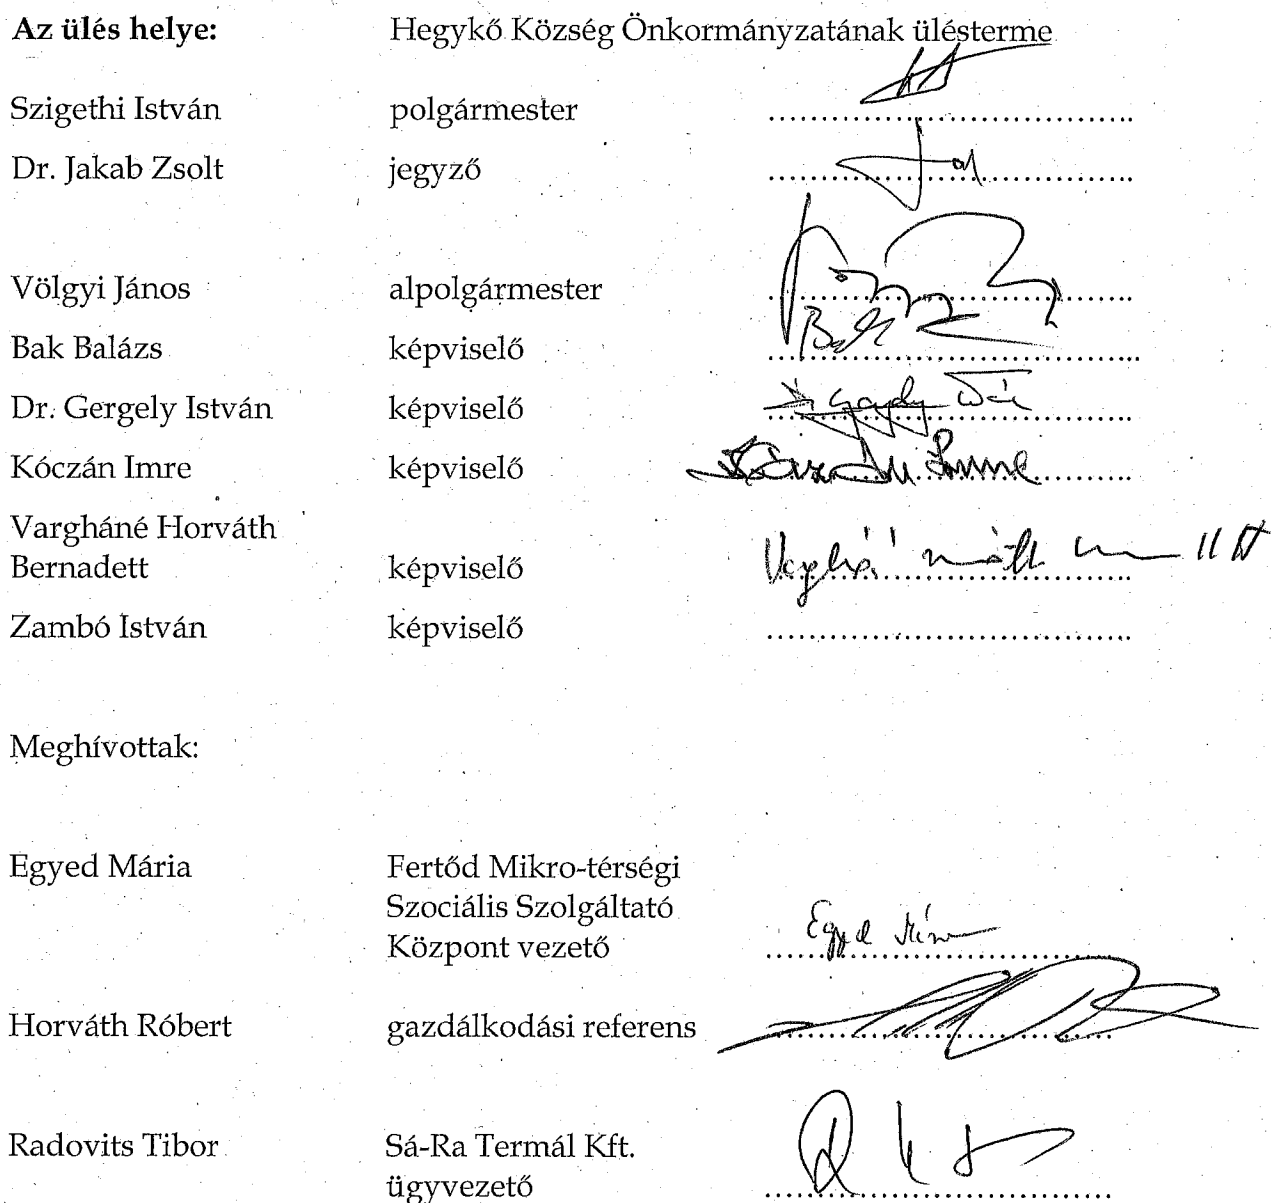 Az ülés helye: Hegykő Község Önkormányzatának ülésterme
Szigethi István polgármester ..................................
Dr. Jakab Zsolt jegyző ..................................
Völgyi János alpolgármester ..................................
Bak Balázs képviselő ..................................
Dr. Gergely István képviselő ..................................
Kóczán Imre képviselő ..................................
Vargháné Horváth
Bernadett képviselő ..................................
Zambó István képviselő ..................................
Meghívottak:
Egyed Mária Fertőd Mikro-térségi
Szociális Szolgáltató
Központ vezető ..................................
Horváth Róbert gazdálkodási referens ..................................
Radovits Tibor Sá-Ra Termál Kft.
ügyvezető ..................................